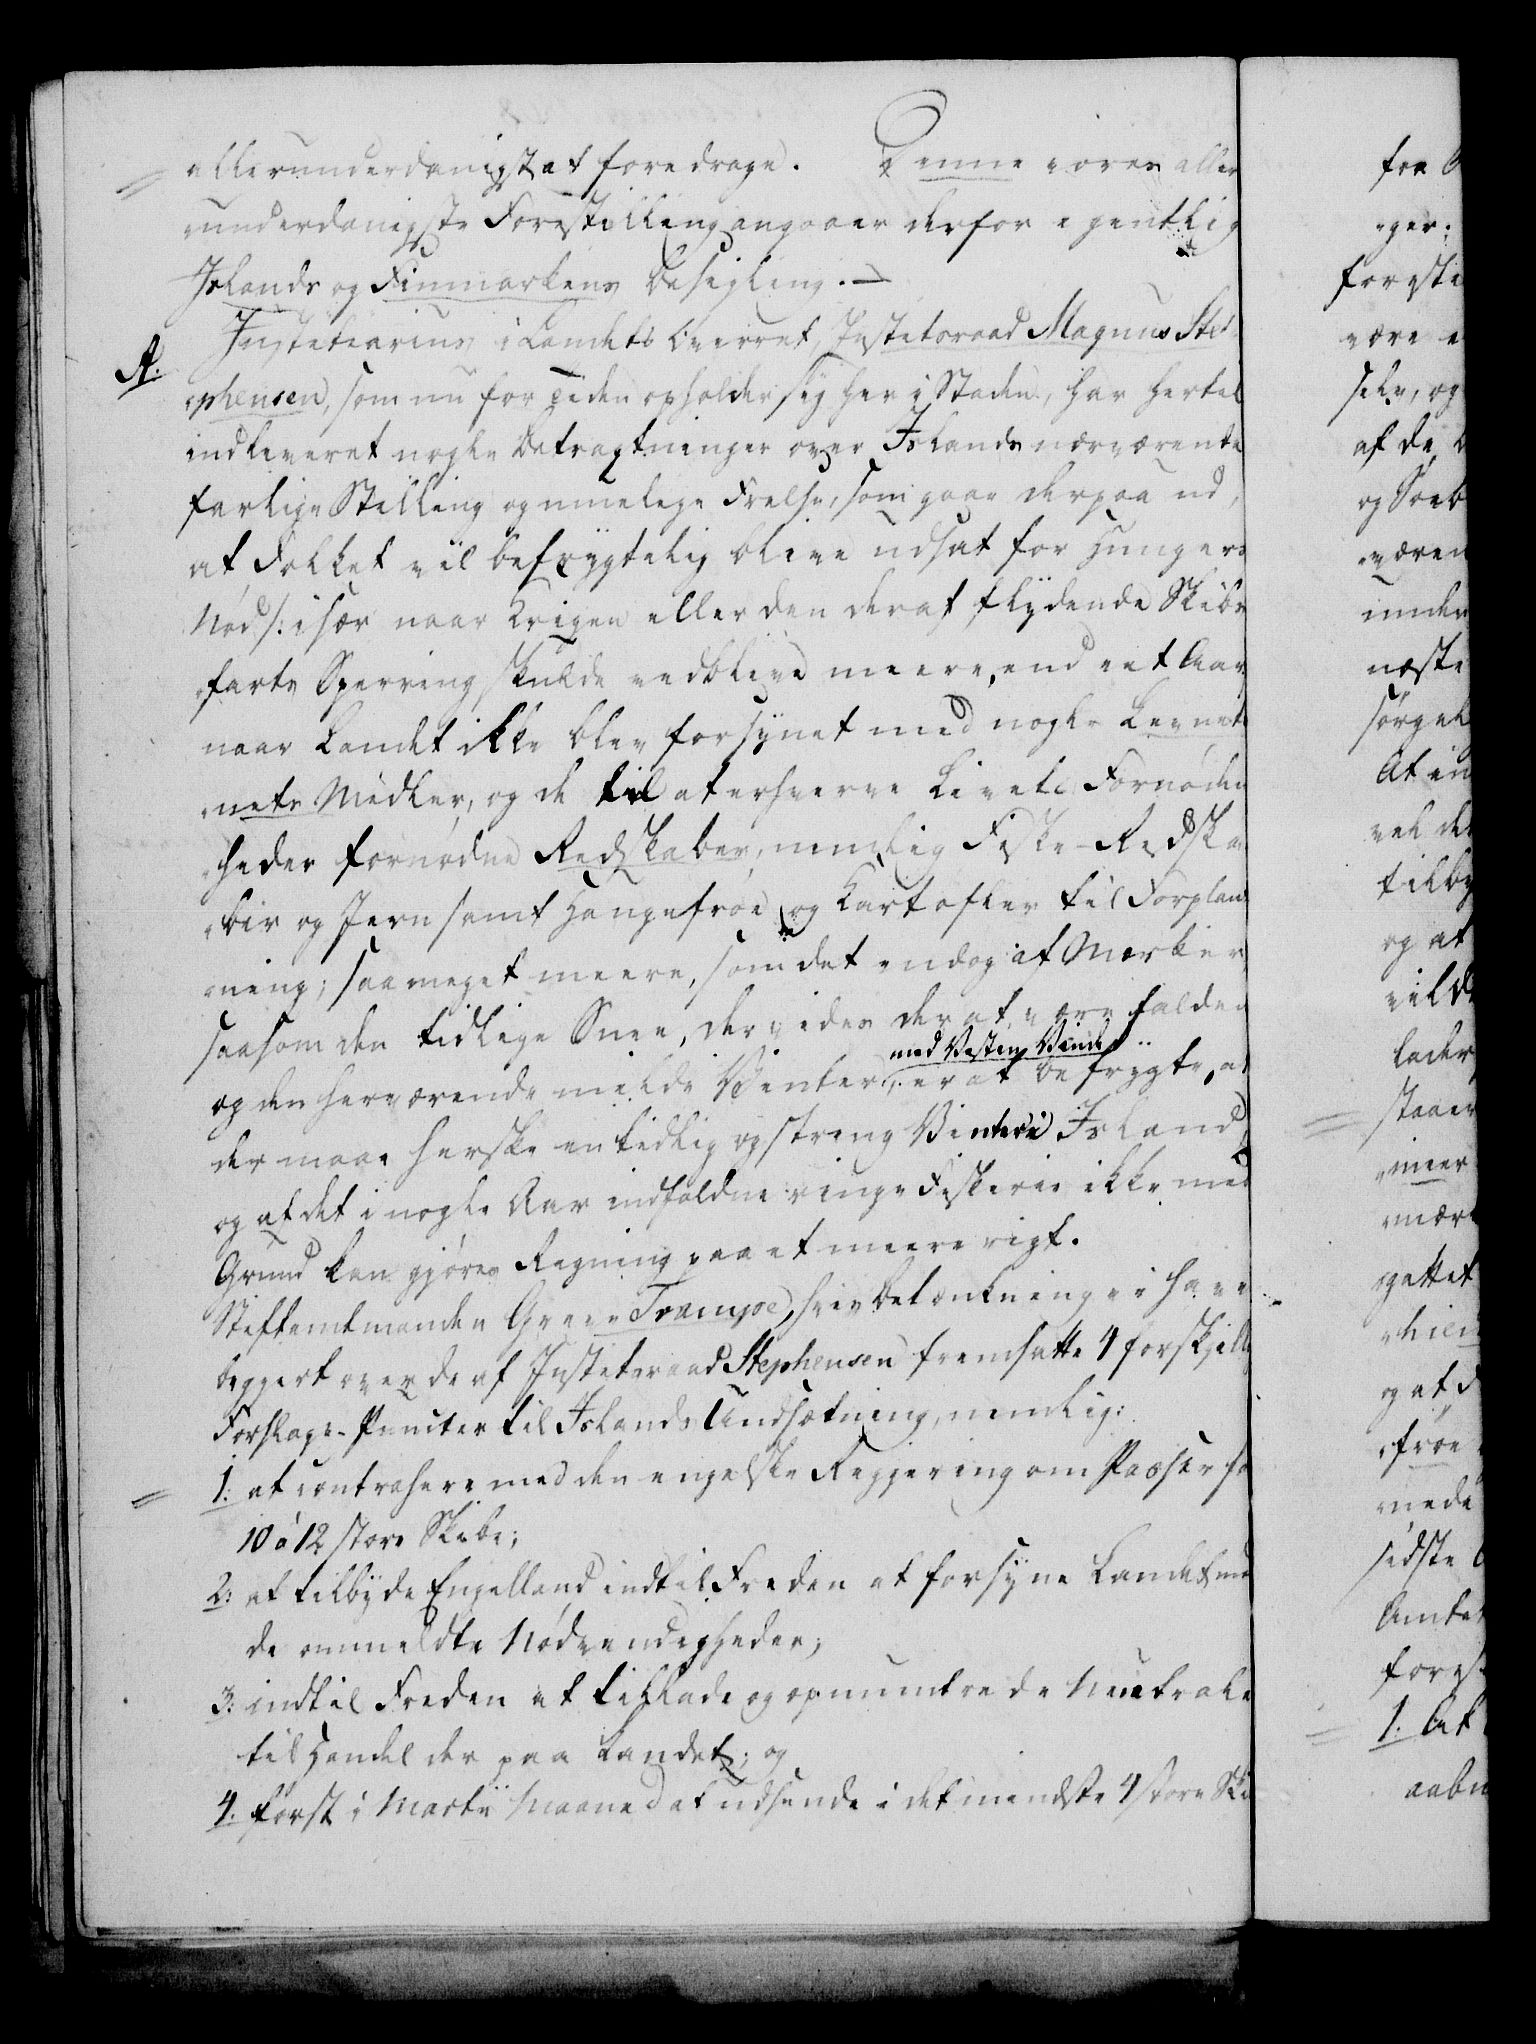 allerunderdanigst at foredrage. Denne vores aller
underdanigste Forestilling angaaer derfor egentlig
Islands og Finmarkens Besigling. –
A. Justitiarius i Landets Overret, Justitsraad Magnus Ste-
„phensen, som nu for Tiden opholder sig her i Staden, har hertil
indleveret nogle Betragtninger over Islands nærværende
farlige Stilling og muelige Frelse, som gaae derpaa ud,
at Folket vil befrygtelig blive udsat for Hungers
Nød /: især naar Krigen eller den deraf flydende Skibs
„farts Sperring skulde vedblive meere, end eet Aar,
naar Landet ikke blev forsynet med nogle Levnets
„nets Midler, og de til at erhverve Livets Fornøden
„heder fornødne Redskaber, nemlig Fiske-Redska
„ber og Jern samt Haugefrøe og Kartofler til Forplant
„ning; saameget meere, som det endog af Mærker,
saasom den tidlige Snee, der vides der at være falden
og den herværende milde Vinter, med Vesten Vinde, er at befrygte, at
der maae herske en tidlig og streng Vinter i Island,
og at det i nogle Aar indfaldne ringe Fiskerie ikke med
Grund kan gjøres Regning paa et meere rigt.
Stiftamtmanden Greve Trampe, hvis Betænkning vi have
begjert over de af Justitsraad Stephensen fremsatte 4 forskjelli
Forslags-Puncter til Islands Undsætning, nemlig:
1: at contrahere med den engelske Regjering om Passer for
10 à 12 store Skibe;
2: at tilbyde Engelland indtil Freden at forsyne Landet med
de ommeldte Nødvendigheder;
3: indtil Freden at tillade og opmuntre de Neutrale
til Handel der paa Landet; og
4. først i Martii Maaned at udsende i det mindste 4 store Ski
fra
„ger;
foresti
være
selv, og
af de
og Søeb
„væren
under
næste
sørgel
At in
vel de
tilby
og at
vilde
lader
staaer
„meer
„mære
„gattet
„hied
og at d
„frøe
„nede
sidste
Amte
forest
1. At
aabn